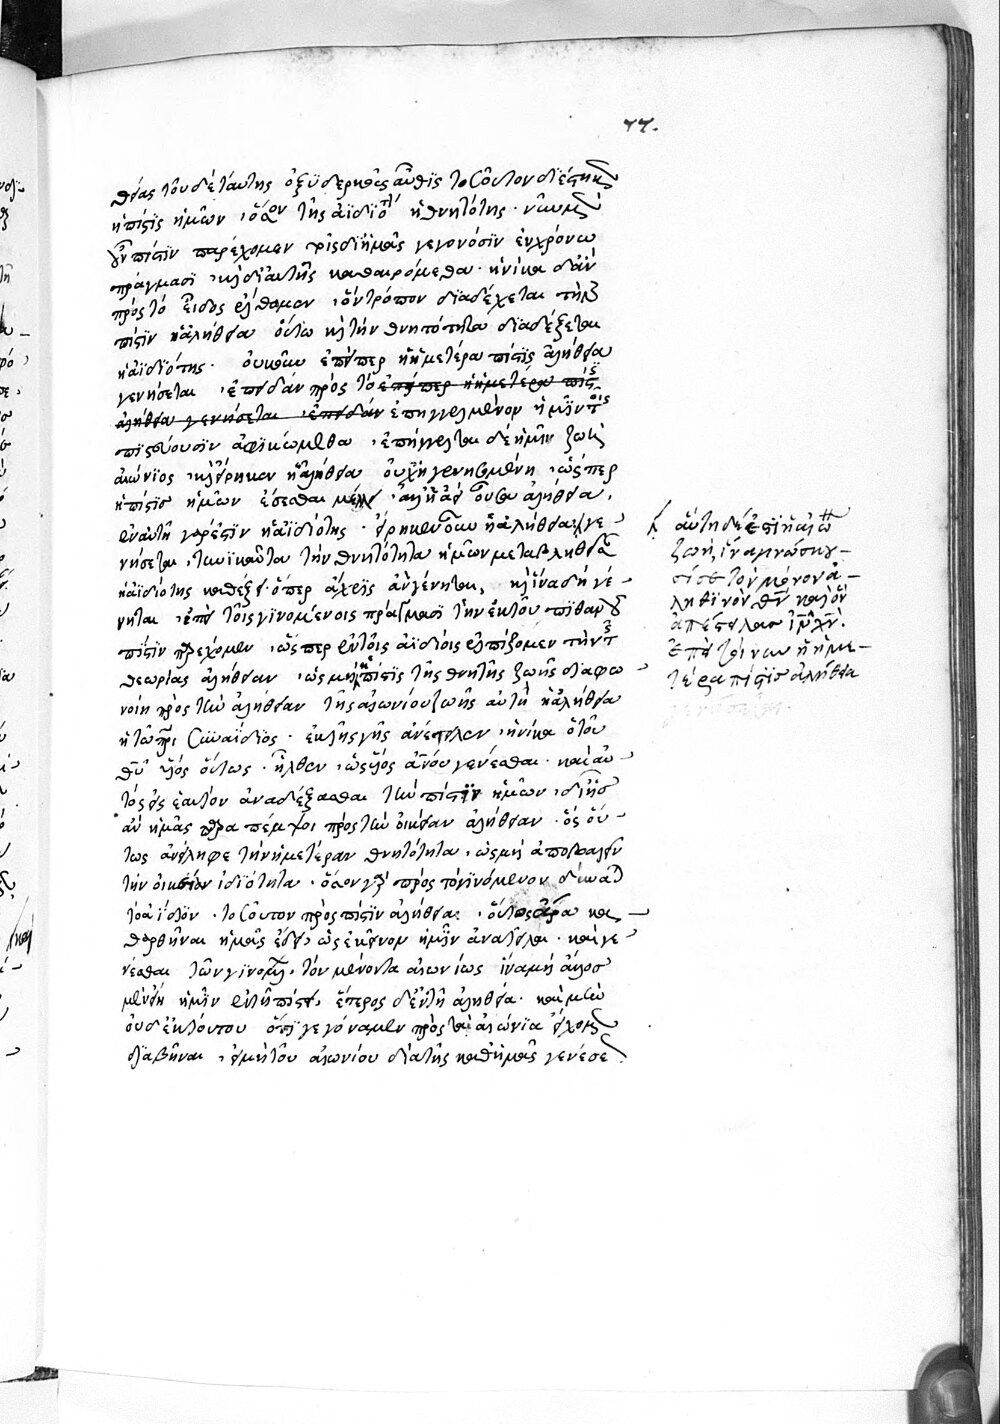 77.
θέας τοῦ δὲ ταύτης ὀξυδερκὲς αὖθις τοσοῦτον διέστηκε
ἡ πίστις ἡμῶν, ὅσον τῆς ἀϊδιότητος ἡ θνητότης· νῦν μὲν
οὖν πίστιν παρέχομεν τοῖς δι' ἡμᾶς γεγονόσιν ἐν χρόνω
πράγμασι, καὶ δι' αὐτῆς καθαιρόμεθα· ἡνίκα δ' ἂν
πρὸς τὸ εἶδος ἔλθωμεν, ὃν τρόπον διαδέχεται τὴν
πίστιν ἡ ἀλήθεια οὕτω καὶ τὴν θνητότητα διαδέξεται
ἡ ἀϊδιότης· οὐκοῦν ἐπείπερ ἡ ἡμετέρα πίστις ἀλήθεια
γενήσεται, ἐπειδὰν πρὸς τὸ ἐπείπερ ἡ ἡμετέρα πίστις
ἀλήθεια γενήσεται, ἐπειδὰν ἐπηγγελμένον ἡμῖν τοῖς
πιστεύουσιν ἀφικώμεθα, ἐπήγγελται δὲ ἡμῖν ζωὴ
αἰώνιος, καὶ εἴρηκεν ἡ ἀλήθεια οὐχ ἡ γενησομένη, ὥσπερ
ἡ πίστις ἡμῶν ἔσεσθαι μέλλει, ἀλλ' ἡ ἀεὶ οὖσα ἀλήθεια,
ἐν αὐτῆ γάρ ἐστιν ἡ ἀϊδιότης· εἴρηκεν οὖν ἡ ἀλήθεια γε-
νήσεται, τηνικαῦτα τὴν θνητότητα ἡμῶν μεταβληθεῖσαν
ἡ ἀϊδιότης καθέξει· ὅπερ ἄχρις ἂν γένηται, καὶ ἵνα δὴ γέ-
νηται, ἐπεὶ τοῖς γινομένοις πράγμασι τὴν ἐκ τοῦ πιθανοῦ
πίστιν παρέχομεν, ὥσπερ ἐν τοῖς ἀϊδίοις ἐλπίζομεν τὴν τῆς
θεωρίας ἀλήθειαν, ὡς μὴ ἡ πίστις τῆς θνητῆς ζωῆς διαφω-
νοίη πρὸς τὴν ἀλήθειαν τῆς αἰωνίου ζωῆς αὐτὴ ἡ ἀλήθεια
ἡ τῶ πατρὶ συναΐδιος· ἐκ τῆς γῆς ἀνέτειλεν, ἡνίκα ὁ τοῦ
θεοῦ υἱὸς οὕτως· ἦλθεν, ὡς υἱὸς ἀνθρώπου γενέσθαι· καὶ αὐ-
τὸς εἰς ἑαυτὸν ἀναδέξασθαι τὴν πίστιν ἡμῶν, δι' ἧς
ἂν ἡμᾶς παραπέμψοι πρὸς τὴν οἰκείαν ἀλήθειαν· ὃς οὕ-
τως ἀνείληφε τὴν ἡμετέραν θνητότητα, ὡς μὴ ἀποβαλεῖν
τὴν οἰκείαν ἀϊδιότητα· ὅσον γὰρ πρὸς τὸ γινόμενον δύναται
τὸ ἀΐδιον· τοσοῦτον πρὸς πίστιν ἀλήθεια, οὕτως ἄρα κα-
θαρθῆναι ἡμᾶς ἔδει, ὡς ἐκεῖνον ἡμῖν ἀνατεῖλαι· καὶ γε-
νέσθαι τῶν γινομένων, τὸν μένοντα αἰωνίως ἵνα μὴ ἄλλος
μὲν εἴη ἡμῖν ἐν τῆ πίστει, ἕτερος δ' ἐν τῆ ἀληθεία· καὶ μὴν
οὐδ' ἐκ τούτου ὅτι γεγόναμεν πρὸς τὰ αἰώνια εἴχομεν
διαβῆναι, εἰ μὴ τοῦ αἰωνίου διὰ τῆς καθ' ἡμᾶς γενέσε
αὕτη δέ ἐστιν ἡ αἰώνιος
ζωή, ἵνα γινώσκου-
σί σε τὸν μόνον ἀ-
ληθινὸν θεὸν καὶ ὃν
ἀπέστειλας ἰησοῦν χριστόν.
ἐπεὶ τοίνυν ἡ ἡμε-
τέρα πίστις ἀλήθεια
γενήσεται.